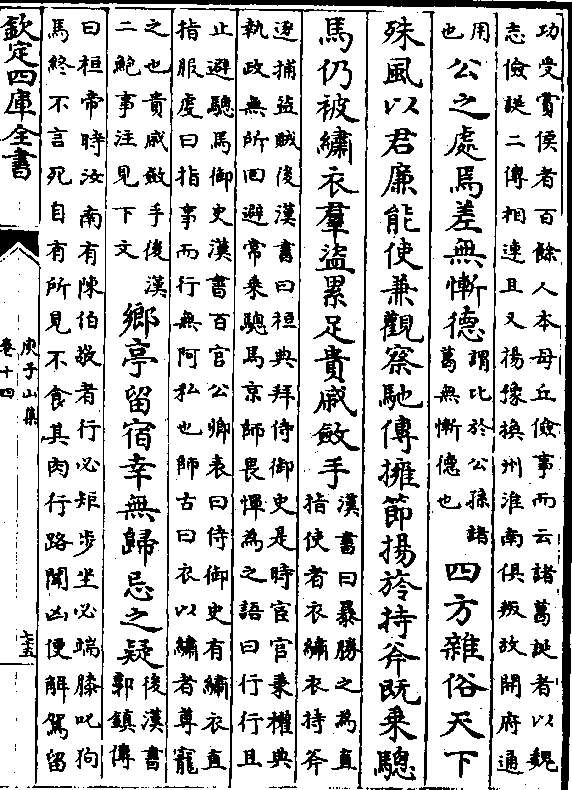 功受賞侯者百餘人本母丘儉事而云諸葛誕者以魏
志儉誕二傳相連且又揚豫換州淮南俱叛故開府通
用
也
公之處焉差無慚德
謂比於公孫諸
葛無慚德也
四方雜俗天下
殊風以君廉能使兼觀察馳傳擁節揚旍持斧既乗驄
馬仍被繡衣羣盜累足貴戚斂手
漢書曰暴勝之為直
指使者衣繡衣持斧
逐捕盜賊後漢書曰桓典拜侍御史是時宦官秉權典
執政無所回避常乗驄馬京師畏憚為之語曰行行且
止避驄馬御史漢書百官公卿表曰侍御史有繡衣直
指服虔曰指事而行無阿私也師古曰衣以繡者尊寵
之也貴戚斂手後漢
二鮑事注見下文
鄉亭留宿幸無歸忌之疑
後漢書
郭鎮傳
曰桓帝時汝南有陳伯敬者行必矩步坐必端膝叱狗
馬終不言死自有所見不食其肉行路聞凶便解駕留
欽定四庫全書
庾子山集
卷十四
七五